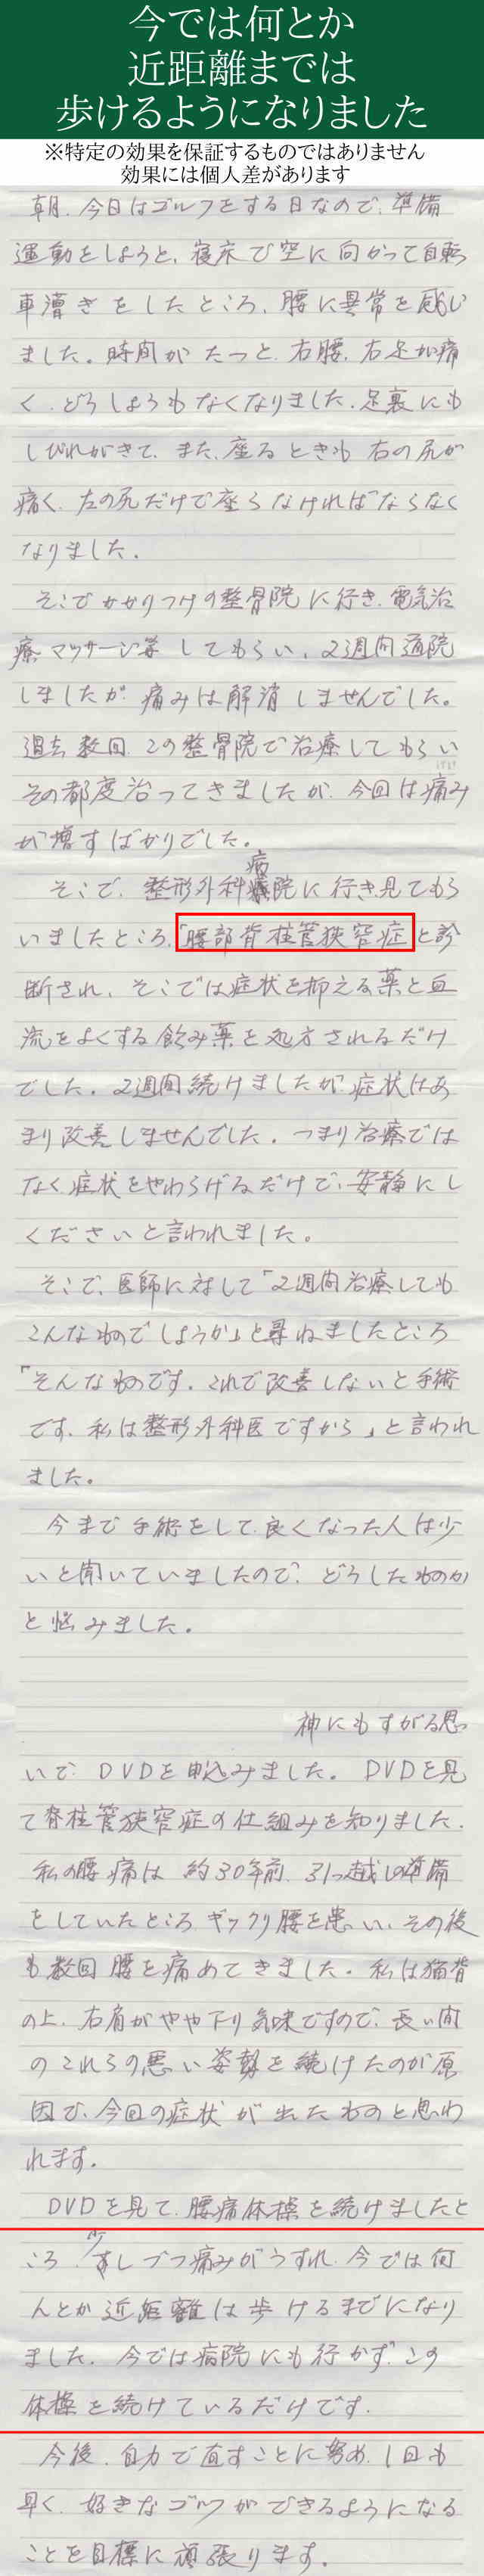 今では何とか
近距離までは
歩けるようになりました
※特定の効果を保証するものではありません
効果には個人差があります
朝、今日はゴルフをする日なので、準備
運動をしようと、寝床で空に向かって自転
車漕ぎをしたところ、腰に異常を感じ
ました。時間がたつと、右腰、右足が痛
く、どうしようもなくなりました。足裏にも
しびれがきて、また、座るときも右の尻が
痛く、左の尻だけで座らなければならなく
なりました。
そこでかかりつけの整骨院に行き、電気治
療、マッサージ等してもらい、2週間通院
しましたが痛みは解消しませんでした。
過去数回、この整骨院で治療してもらい
その都度治ってきましたが、今回は痛み
が増すばかりでした。
そこで、整形外科病院に行き見てもら
いましたところ、「腰部脊柱管狭窄症」と診
断され、そこでは症状を抑える薬と血
流をよくする飲み薬を処方されるだけ
でした。2週間続けましたが症状はあ
まり改善しませんでした。つまり治療では
なく症状をやわらげるだけで、安静にし
くださいと言われました。
そこで、医師に対して「2週間治療しても
こんなものでしょうか」と尋ねましたところ
「そんなものです。これで改善しないと手術
です。私は整形外科医ですから」と言われ
ました。
今まで手術をして良くなった人は少
いと聞いていましたので、どうしたものか
と悩みました。
神にもすがる思
いで DVDを申込みました。DVDを見
て脊柱管狭窄症の仕組みを知りました。
私の腰痛は約30年前、引っ越しの準備
をしていたところギックリ腰を患い、その後
も数回腰を痛めてきました。私は猫背
の上、右肩がやや下り気味ですので、長い間
のこれらの悪い姿勢を続けたのが原
因で、今回の症状が出たものと思わ
れます。
DVDを見て、腰痛体操を続けましたと
ころ、少しづつ痛みがうすれ、今では何
んとか近距離は歩けるまでになり
ました。今では病院にも行かず、この
体操を続けているだけです。
今後、自力で直すことに努め、1日も
早く、好きなゴルフができるようになる
ことを目標に頑張ります。